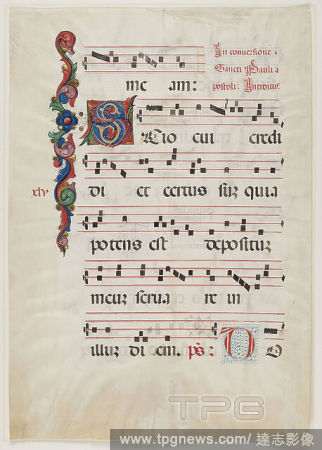 me am:
In conversione
Sancti Pauli a
postoli: Introitus
Scio cui credi
di et certus sum quia
potens est depositum
meum serva re in
illum di em. ps: D O
xlv
TPG
www.tpgnews.com / 達志影像